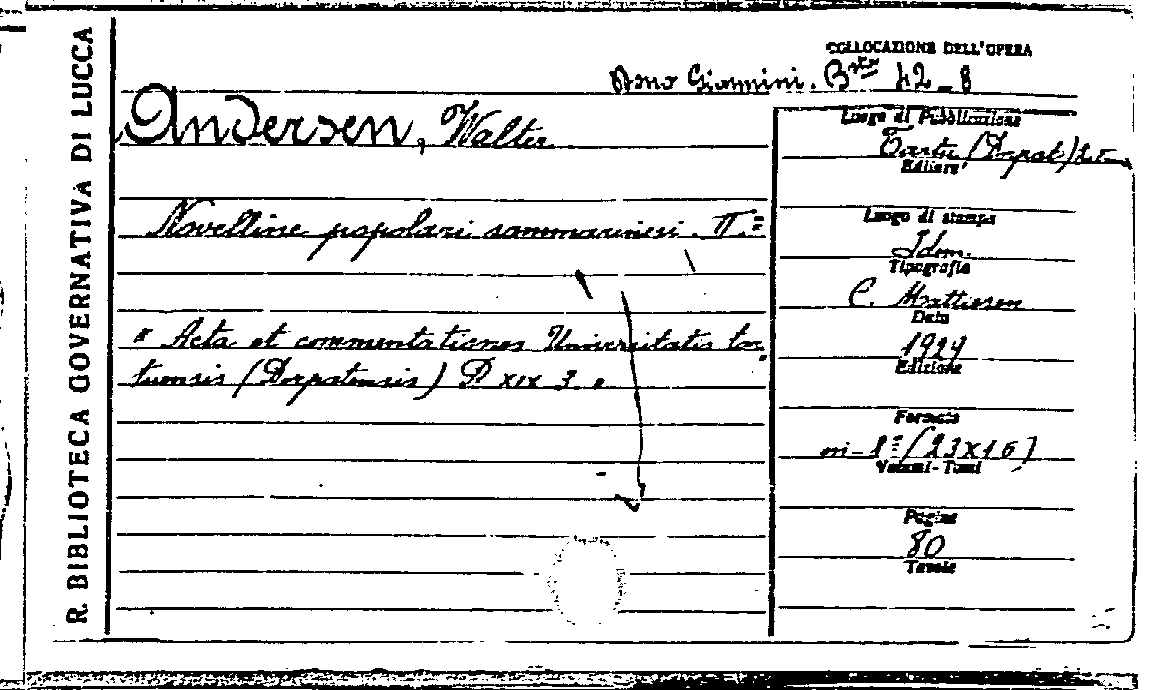 R. BIBLIOTECA GOVERNATIVA DI LUCCA
COLLOCAZIONE DELL'OPERA
Giannini. B 42 - 8
Andersen, Walter
Novelline popolari sammarinesi. II.=
" Acta et commentationes Universitatis tar
tuensis (Dorpatensis) B XIX 3. "
Luogo di Pubblicazione
Tartu (Dorpat)
Editore
Luogo di stampa
Idem.
Tipografia
C. Mattiesen
Data
1929
Edizione
Formato
in-8= (23x16)
Volumi-Tomi
Pagine
80
Tavole